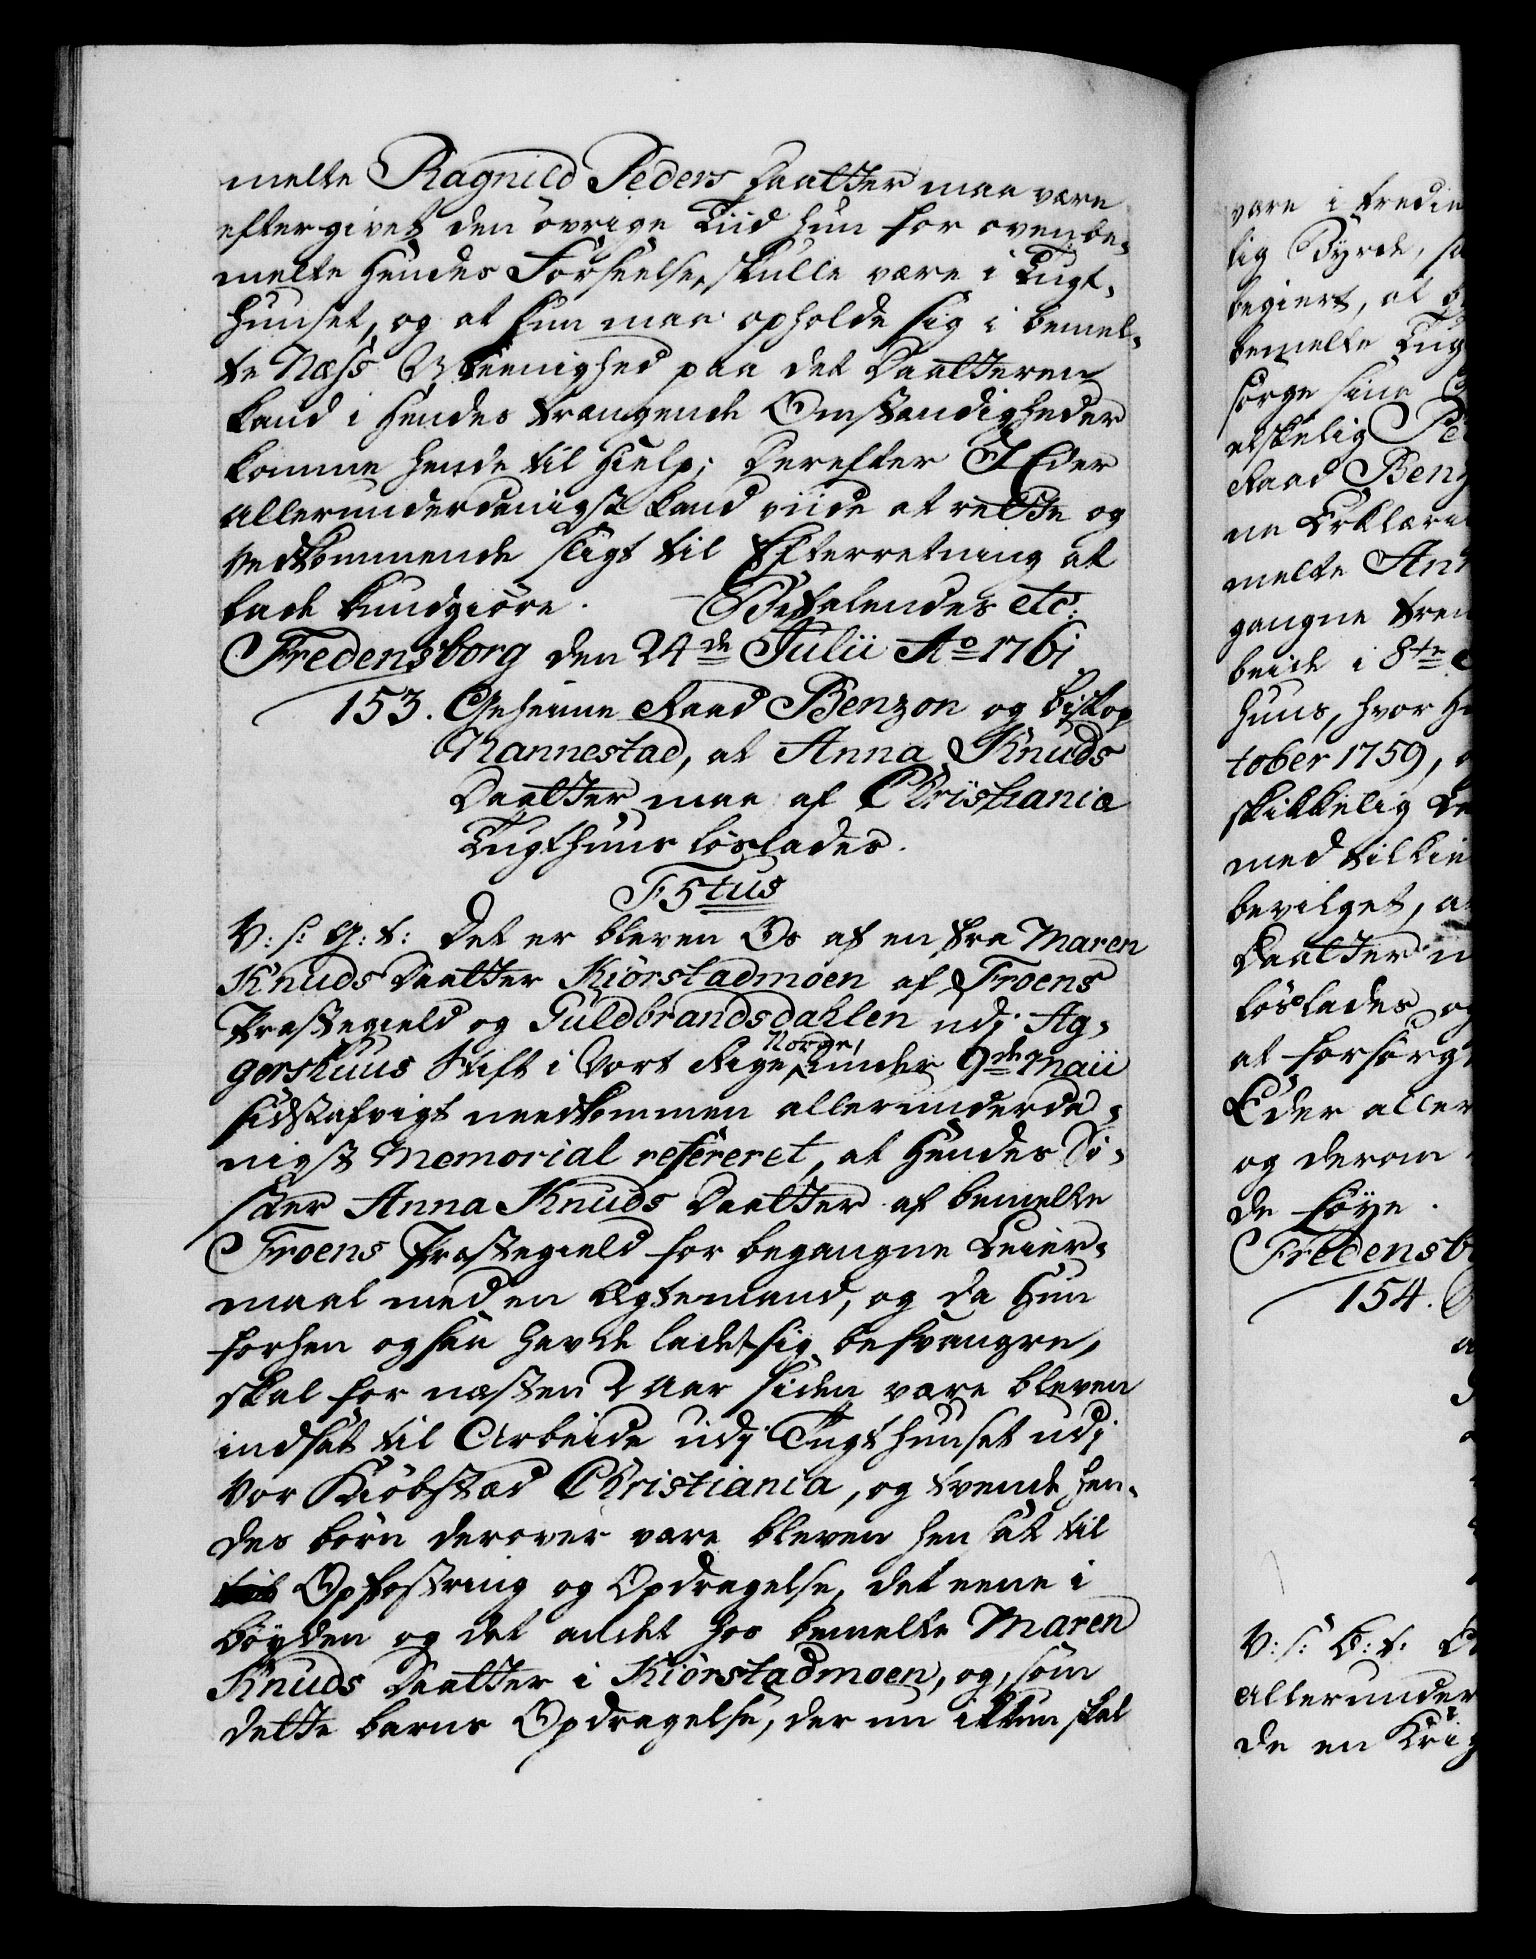 melte Ragnild Peders Daatter maa være
eftergivet den övrige Tiid hun for ovenbe-
melte Hendes Forseelse, skulle være i Tugt-
Huuset, og at hun maa opholde sig i bemel-
te Næss Meenighed paa det Daatteren
kand i Hendes trangende Omstændigheder
komme hende til Hielp; Derefter I Eder
allerunderdanigst kand viide at rette og
vedkommende sligt til Efterretning at
lade kundgiöre. Befalendes etc:
Fredensborg den 24de Julii Ao 1761
153. Geheime Raad Benzon og biskop
Nannestad, at Anna Knuds
Daatter maa af Christiania
Tugthuus löslades.
F5tus
V: s: G: t: Det er bleven Os af en fra Maren
Knuds Daatter Kiörstadmoen af Froens
Præstegield og Guldbrandsdahlen udj Ag-
gershuus Stift i Vort Rige Norge, under 9de Maii
sidstafvigt neerkommen allerunderda-
nigst Memorial refereret, at Hendes Sö-
ster Anna Knuds Daatter af bemelte
Froens Præstegield for begangne Leier-
maal med en Ægtemand, og da Hun
forhen og saa havde ladet sig besvangre,
skal for næsten 2 Aar siden være bleven
indsat til Arbeide udj Tugthuuset udj
Vor Kiöbstæd Christiania, og tvende hen-
des börn derover være bleven hen sat til
til Opfostring og Opdragelse, det eene i
böyden og det andet hos bemelte Maren
Knuds Daatter i Kiörstadmoen, og, som
dette barns Opdragelse, der nu ikkun skal
være i tredie
lig Byrde, sa
begiert, at
bemelte Tug
sörge sine
elskelig Pe
Raad Benz
ne Erklæri
melte An
gangne tren
beide i 8te
Huus, hvor H
tober 1759,
skikkelig Le
med tilkie
bevilget, a
Daatter
löslades og
at forsörge
Eder aller
og derom
de föye.
Fredensb
154.
V: s: G: t:
allerunder
de en Krig